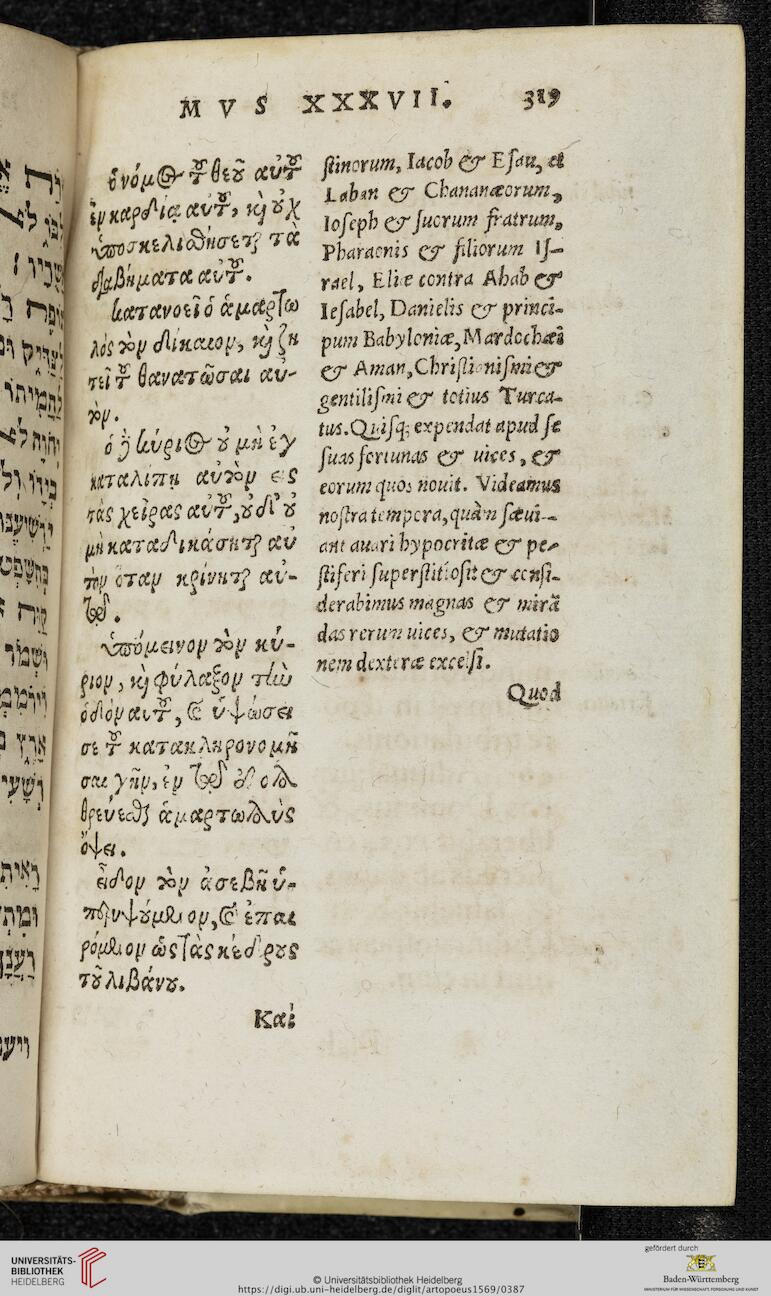 MVS XXXVII. 319
ὁ νόμος τοῦ θεοῦ αὐτοῦ
ἐν καρδίᾳ αὐτοῦ, καὶ οὐχ
ὑποσκελισθήσεται τὰ
διαβήματα αὐτοῦ.
κατανοεῖ ὁ ἁμαρτω
λὸς τὸν δίκαιον, καὶ ζη
τεῖ τοῦ θανατῶσαι αὐ-
τὸν.
ὁ δὲ κύριος οὐ μὴ ἐγ
καταλίπῃ αὐτὸν εἰς
τὰς χεῖρας αὐτοῦ, οὐδ' οὐ
μὴ καταδικάσηται αὐ
τὸν ὅταν κρίνηται αὐ-
τῷ.
ὑπόμεινον τὸν κύ-
ριον, καὶ φύλαξον τὴν
ὁδὸν αὐτοῦ, καὶ ὑψώσει
σε τοῦ κατακληρονομῆ
σαι γῆν, ἐν τῷ ἐξολο
θρεύεσθαι ἁμαρτωλοὺς
ὄψει.
εἶδον τὸν ἀσεβῆ ὑ-
περυψούμενον, καὶ ἐπαι
ρόμενον ὡς τὰς κέδρους
τοῦ λιβάνου.
Καὶ
stinorum, Iacob & Esau, et
Laban & Chananæorum,
Ioseph & suorum fratrum,
Pharaonis & filiorum Is-
rael, Eliæ contra Ahab &
Iesabel, Danielis & princi-
pum Babyloniæ, Mardochæi
& Aman, Christianismi &
gentilismi & totius Turca-
tus. Quisq; expendat apud se
suas fortunas & uices, &
eorum quos nouit. Videamus
nostra tempora, quàm sæui-
ant auari hypocritæ & pe-
stiferi superstitiosi: & consi-
derabimus magnas & mirã
das rerum uices, & mutatio
nem dexteræ excelsi.
Quod
UNIVERSITÄTS-
BIBLIOTHEK
HEIDELBERG
© Universitätsbibliothek Heidelberg
https://digi.ub.uni-heidelberg.de/diglit/artopoeus1569/0387
gefördert durch
Baden-Württemberg
MINISTERIUM FÜR WISSENSCHAFT, FORSCHUNG UND KUNST